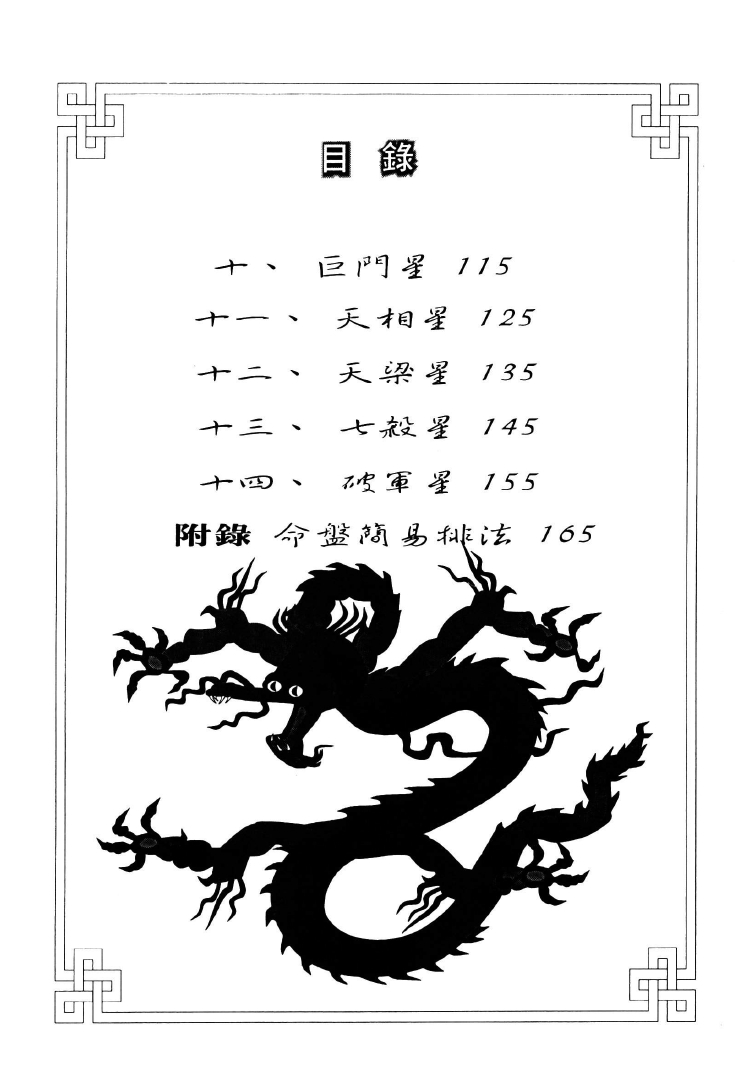 目錄
十、 巨門星 115
十一、 天相星 125
十二、 天梁星 135
十三、 七殺星 145
十四、 破軍星 155
附錄 命盤簡易排法 165